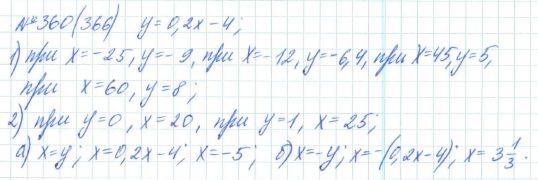 № 360(366) y=0,2x-4;
1) при x=-25, y=-9, при x=-12, y=-6,4, при x=45, y=5,
при x=60, y=8;
2) при y=0, x=20, при y=1, x=25;
а) x=y; x=0,2x-4; x=-5; б) x=-y; x=-(0,2x-4); x=3 1/3.